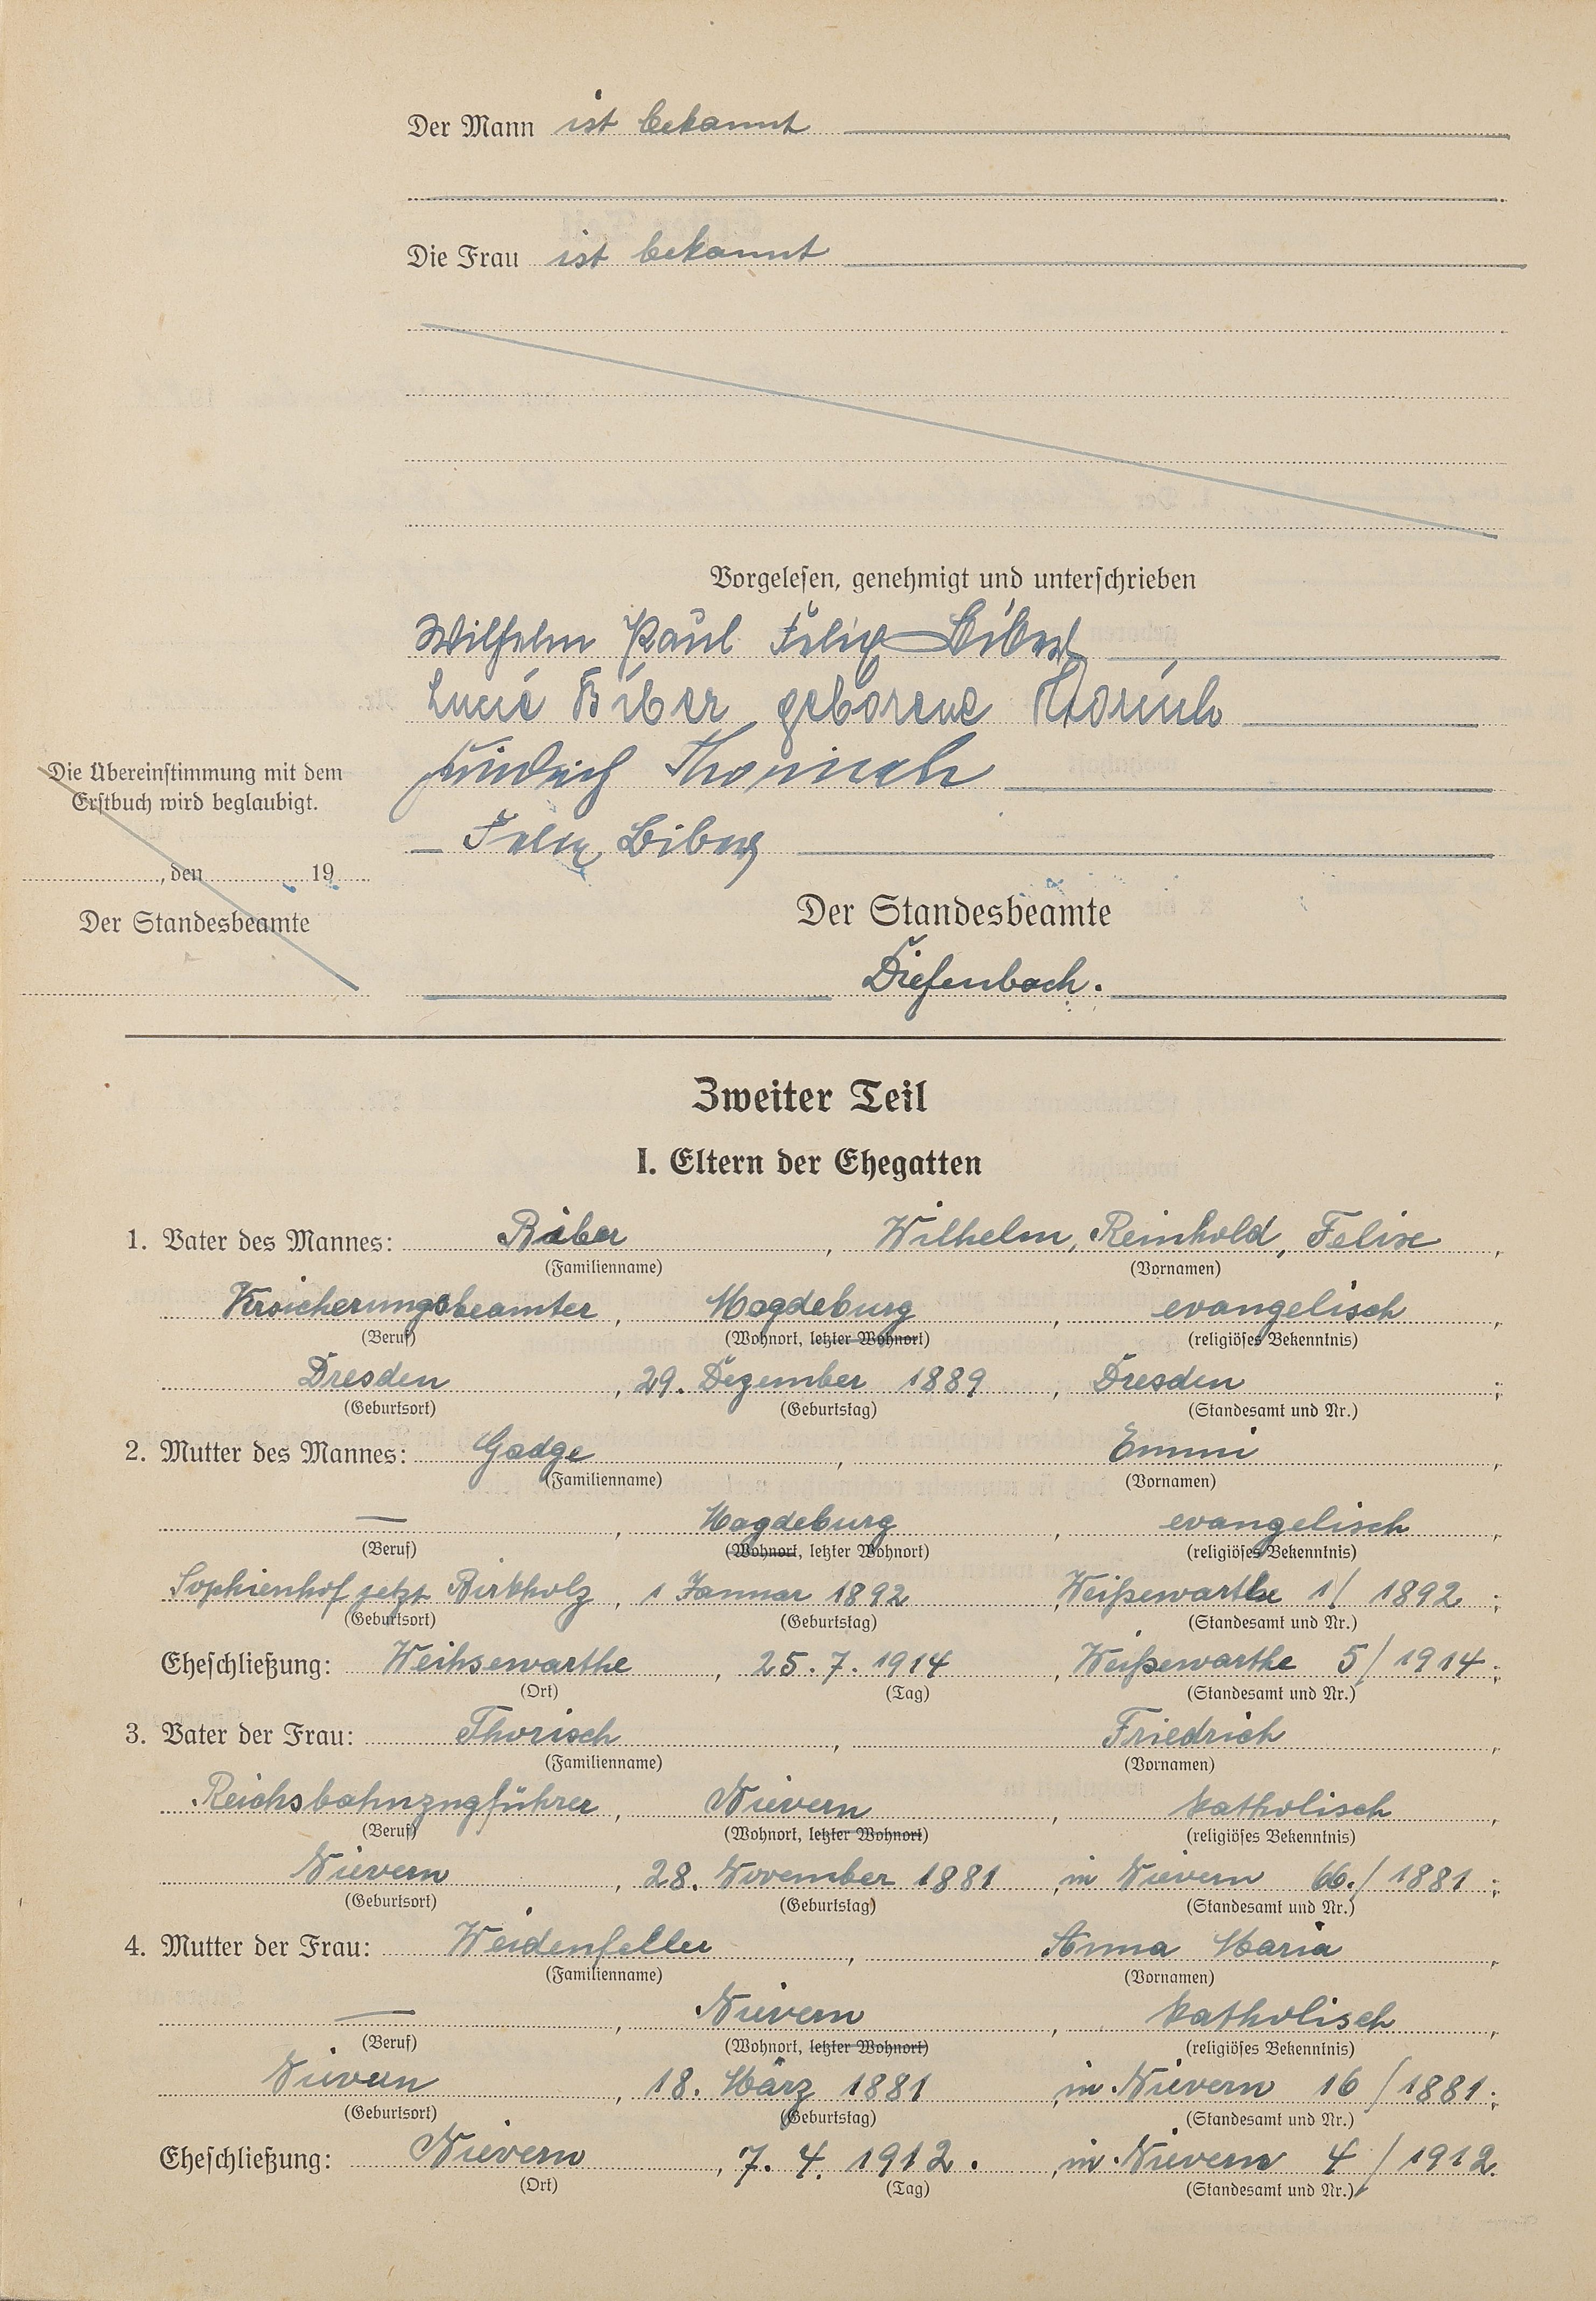 Der Mann ist bekannt
Die Frau ist bekannt
Vorgelesen, genehmigt und unterschrieben
Wilhelm Paul Felix Biber
Lucie Biber geborene Thorisch
Friedrich Thorisch
Felix Biber
Die Übereinstimmung mit dem
Erstbuch wird beglaubigt.
, den 19
Der Standesbeamte
Der Standesbeamte
Diefenbach.
Zweiter Teil
I. Eltern der Ehegatten
1. Vater des Mannes: Biber, Wilhelm, Reinhold, Felix,
(Familienname) (Vornamen)
Versicherungsbeamter, Magdeburg, evangelisch,
(Beruf) (Wohnort, letzter Wohnort) (religiöses Bekenntnis)
Dresden, 29. Dezember 1889, Dresden;
(Geburtsort) (Geburtstag) (Standesamt und Nr.)
2. Mutter des Mannes: Gadge, Emmi,
(Familienname) (Vornamen)
—, Magdeburg, evangelisch,
(Beruf) (Wohnort, letzter Wohnort) (religiöses Bekenntnis)
Sophienhof jetzt Birkholz, 1 Januar 1892, Weißewarthe 1/1892;
(Geburtsort) (Geburtstag) (Standesamt und Nr.)
Eheschließung: Weihsewarthe, 25. 7. 1914, Weißewarthe 5/1914;
(Ort) (Tag) (Standesamt und Nr.)
3. Vater der Frau: Thorisch, Friedrich,
(Familienname) (Vornamen)
Reichsbahnzugführer, Nievern, katholisch,
(Beruf) (Wohnort, letzter Wohnort) (religiöses Bekenntnis)
Nievern, 28. November 1881, in Nievern 66./1881;
(Geburtsort) (Geburtstag) (Standesamt und Nr.)
4. Mutter der Frau: Weidenfeller, Anna Maria,
(Familienname) (Vornamen)
—, Nievern, katholisch,
(Beruf) (Wohnort, letzter Wohnort) (religiöses Bekenntnis)
Nievern, 18. März 1881, in Nievern 16/1881;
(Geburtsort) (Geburtstag) (Standesamt und Nr.)
Eheschließung: Nievern, 7. 4. 1912., in Nievern 4/1912.
(Ort) (Tag) (Standesamt und Nr.)